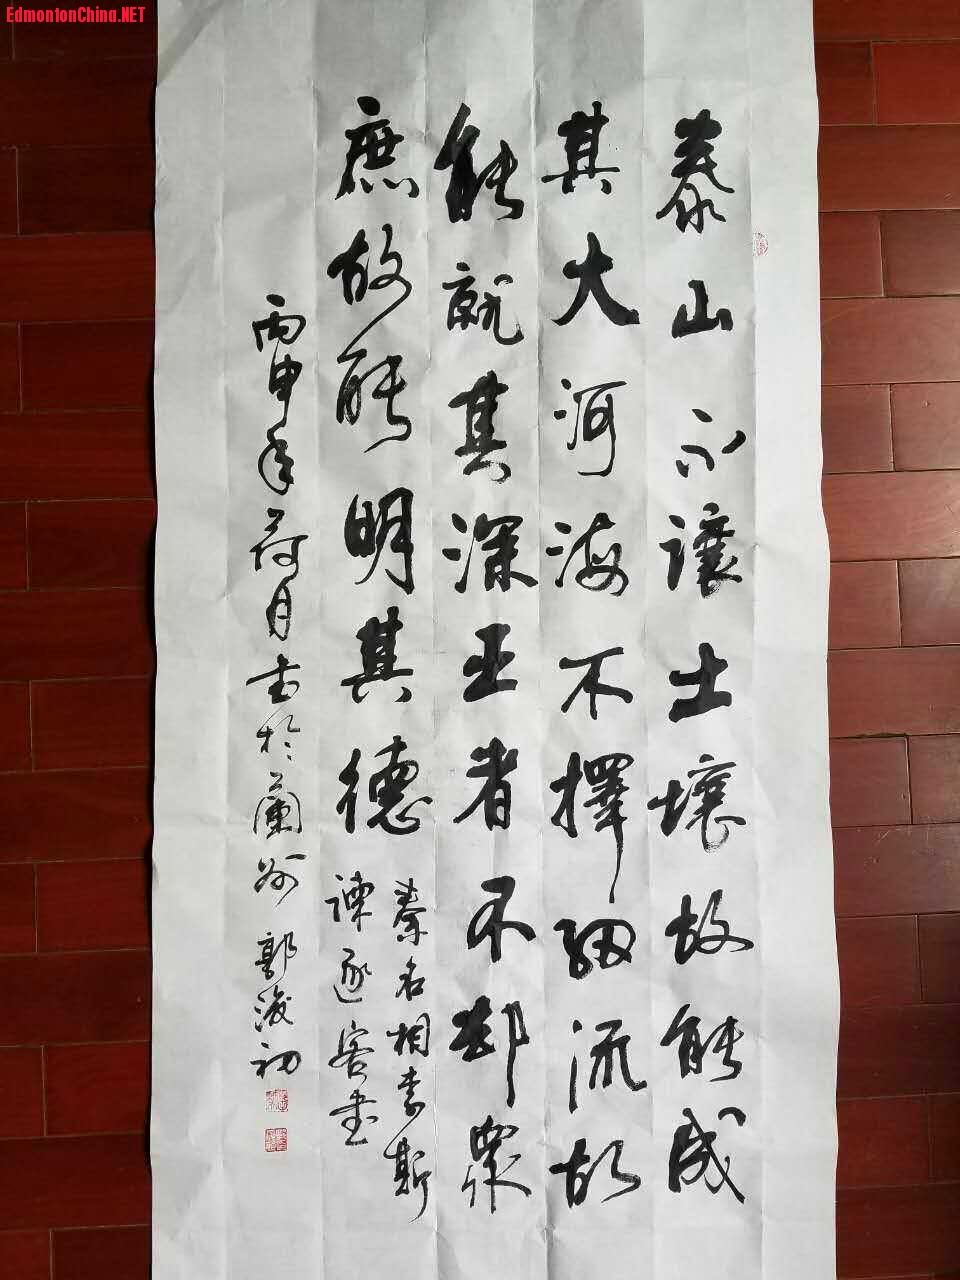 EdmontonChina.NET
泰山不讓土壤故能成
其大河海不擇細流故
能就其深王者不卻衆
庶故能明其德
秦名相李斯
諫逐客書
丙申年荷月书於蘭州 郭浚初